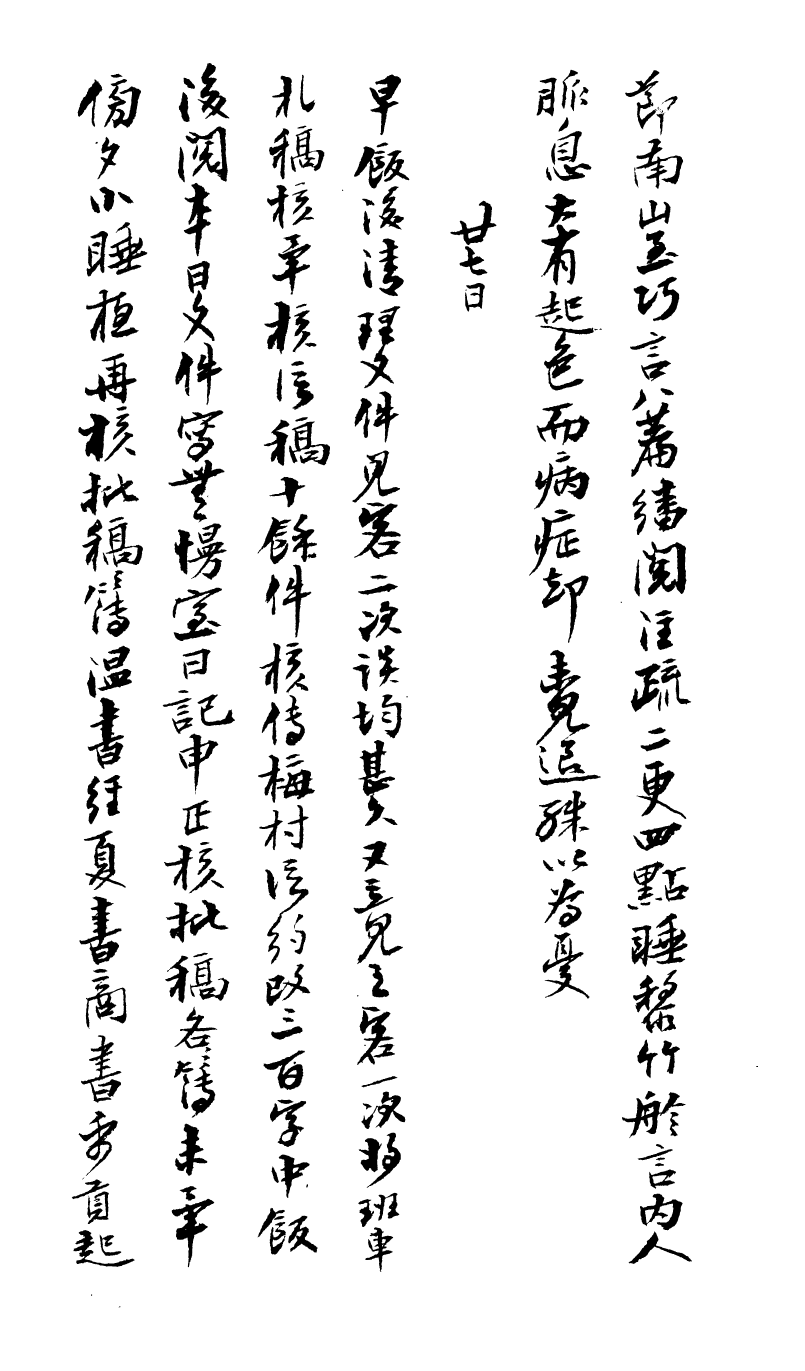 節南山至巧言八篇繙閱注疏二更四點睡黎竹舲言內人
脈息大有起色而病症却未覺退殊以為憂
廿七日
早飯後清理文件見客二次談均甚久又立見之客一次將班車
札稿核畢核信稿十餘件核傅梅村信約改三百字中飯
後閱本日文件寫無慢室日記申正核批稿各簿未畢
傍夕小睡夜再核批稿簿溫書經夏書商書禹貢起